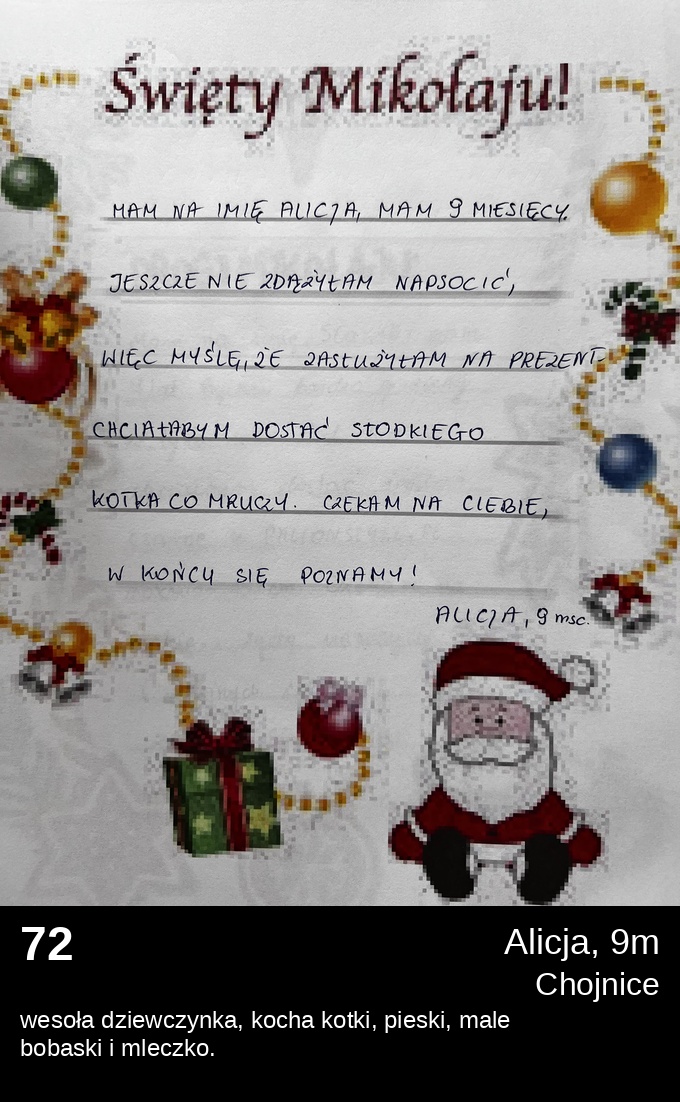 Święty Mikołaju!
MAM NA IMIĘ ALICJA, MAM 9 MIESIĘCY.
JESZCZE NIE ZDĄŻYŁAM NAPSOCIĆ,
WIĘC MYŚLĘ, ŻE ZASŁUŻYŁAM NA PREZENT.
CHCIAŁABYM DOSTAĆ SŁODKIEGO
KOTKA CO MRUCZY. CZEKAM NA CIEBIE,
W KOŃCU SIĘ POZNAMY!
ALICJA, 9 msc.
72
Alicja, 9m
Chojnice
wesoła dziewczynka, kocha kotki, pieski, male
bobaski i mleczko.